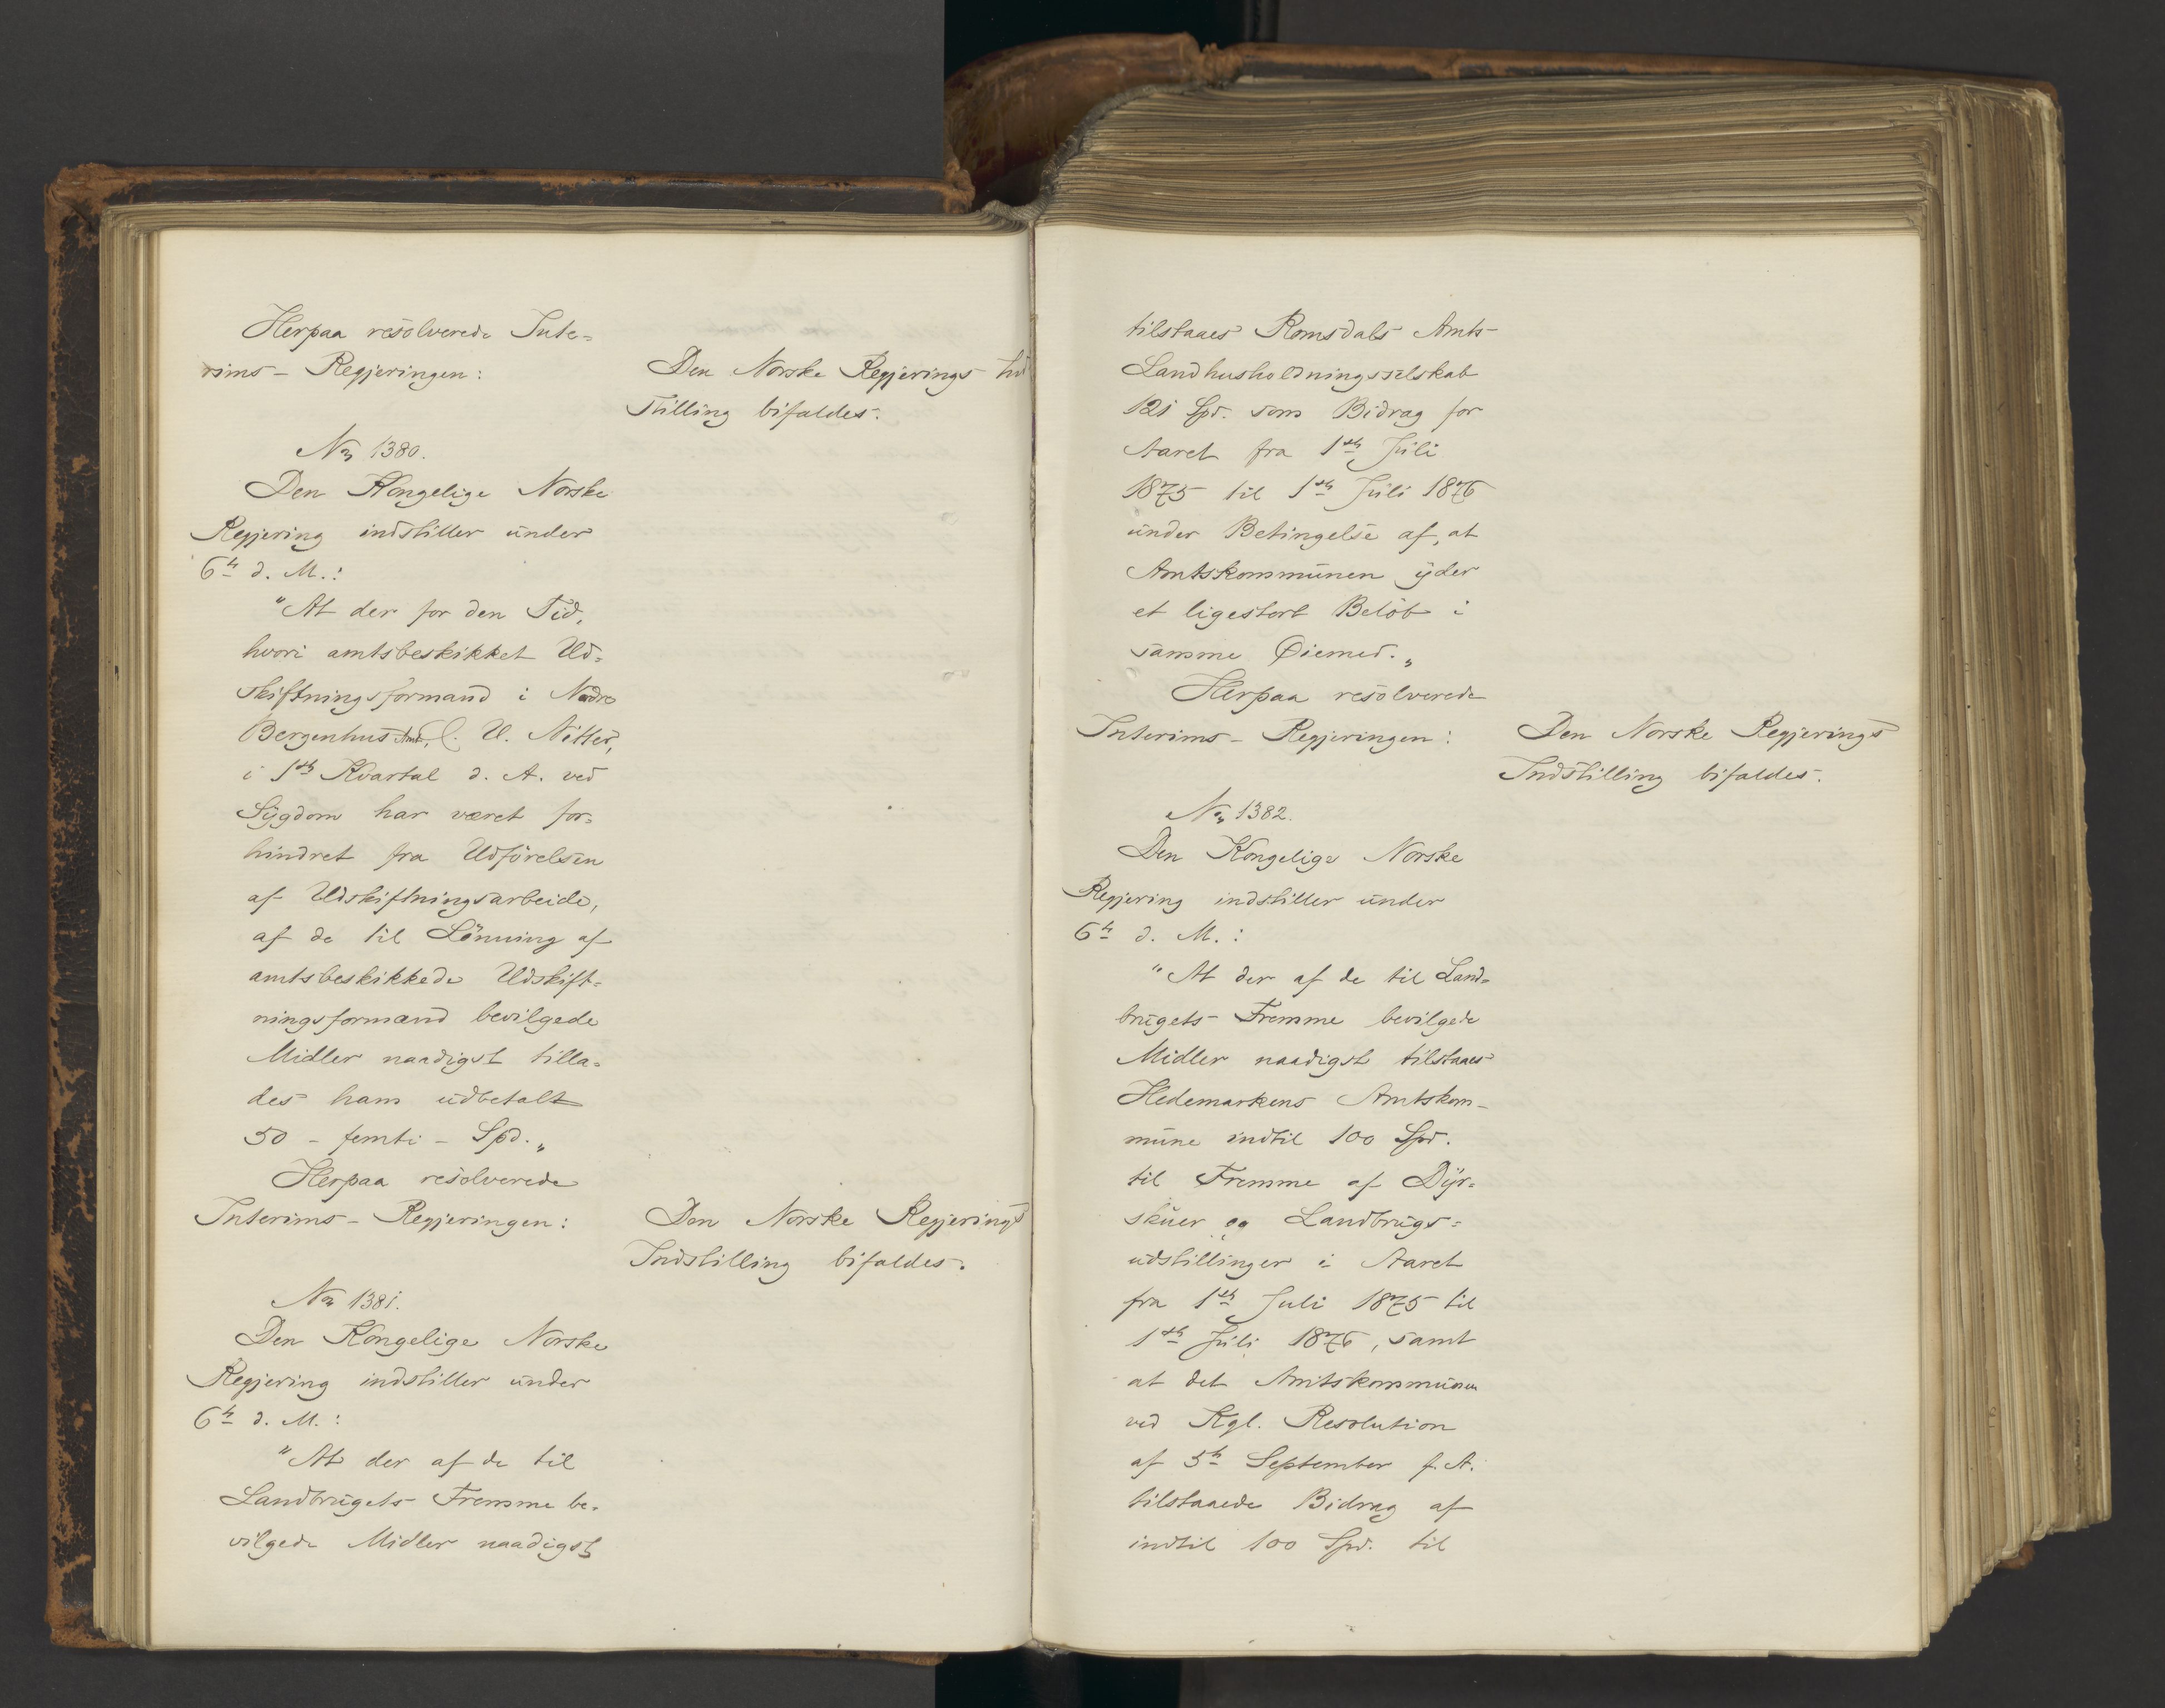 Herpaa resolverede Inte-
rims- Regjeringen:
Den Norske Regjerings Ind
stilling bifaldes.
No 1380.
Den Kongelige Norske
Regjering indstiller under
6te d. M.:
"At der for den Tid,
hvori amtsbeskikket Ud-
skiftningsformand i Nordre
Bergenhus Amt, C. U. Nitter,
i 1ste Kvartal d. A. ved
Sygdom har været for-
hindret fra Udförelsen
af Udskiftningsarbeide,
af de til Lönning af
amtsbeskikkede Udskift-
ningsformænd bevilgede
Midler naadigst tilla-
des ham udbetalt
50 - femti - Spd."
Herpaa resolverede
Interims- Regjeringen:
Den Norske Regjerings
Indstilling bifaldes.
No 1381.
Den Kongelige Norske
Regjering indstiller under
6te d. M.:
"At der af de til
Landbrugets Fremme be-
vilgede Midler naadigst
tilstaaes Romsdals Amts-
Landhusholdningsselskab
121 Spd. som Bidrag for
Aaret fra 1ste Juli
1875 til 1ste Juli 1876
under Betingelse af, at
Amtskommunen yder
et ligestort Belöb i
samme Øiemed."
Herpaa resolverede
Interims- Regjeringen:
Den Norske Regjerings
Indstilling bifaldes.
No 1382.
Den Kongelige Norske
Regjering indstiller under
6te d. M.:
"At der af de til Land-
brugets Fremme bevilgede
Midler naadigst tilstaaes
Hedemarkens Amtskom-
mune indtil 100 Spd.
til Fremme af Dyr-
skuer og Landbrugs-
udstillinger i Aaret
fra 1ste Juli 1875 til
1ste Juli 1876, samt
at det Amtskommunen
ved Kgl. Resolution
af 5te September f. A.
tilstaaede Bidrag af
indtil 100 Spd. til